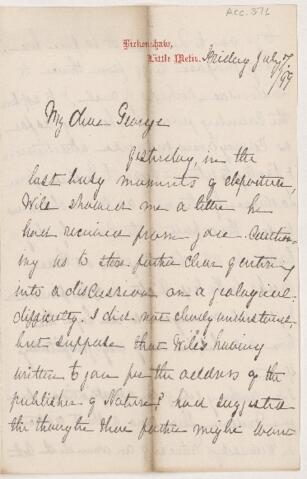 Acc. 576
Birkenshaw,
Little Metis.
Friday July 7/99
My dear George
Yesterday, in the
last busy moments of departure,
Will showed me a letter he
had received from you. Caution-
ing us to steer father clear of entering
into a discussion on a geological
difficulty. I did not clearly understand,
but suppose that Will's having
written to you for the address of the
publisher of "Nature" had suggested
the thought that father might want